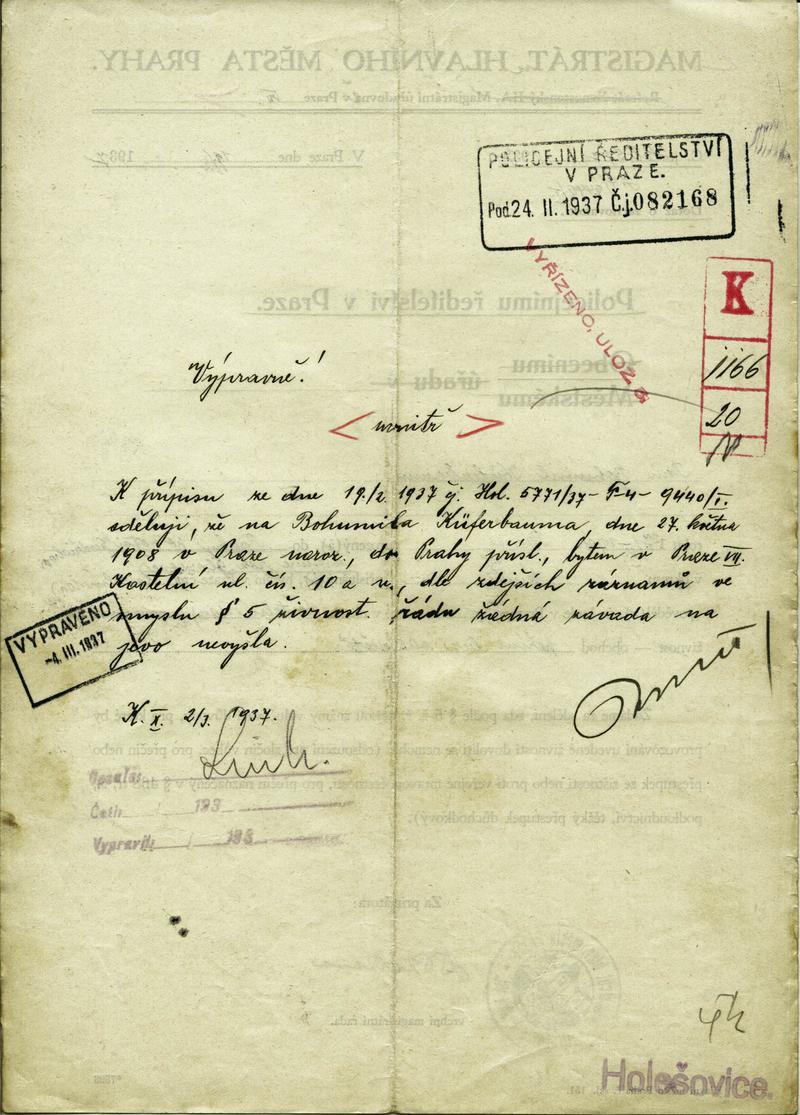 POLICEJNÍ ŘEDITELSTVÍ
V PRAZE.
Pod. 24. II. 1937 Č.j. 082168
VYŘÍZENO, ULOŽ.
K
1166
20
Výpravně!
< uvnitř >
K přípisu ze dne 19./2. 1937 čj. Hol. 5771/37 - F4 - 9440/I.
sděluji, že na Bohumila Küferbauma, dne 27. května
1908 v Praze naroz., do Prahy přísl., bytem v Praze VII.
Kostelní ul. čís. 10 a n., dle zdejších záznamů ve
smyslu § 5 živnost. řádu žádná závada na
jevo nevyšla.
VYPRAVENO
-4. III. 1937
K. II. 2/3. 1937.
Opsal:
Četl: 193
Vypravil: 193
Holešovice.
MAGISTRÁT HLAVNÍHO MĚSTA PRAHY.
V Praze dne 193
Policejnímu ředitelství v Praze.
Obecnímu
Městskému úřadu v
živnost — obchod
podloudnictví, těžký přestupek důchodkový).
Za primátora:
vrchní magistrátní rada.